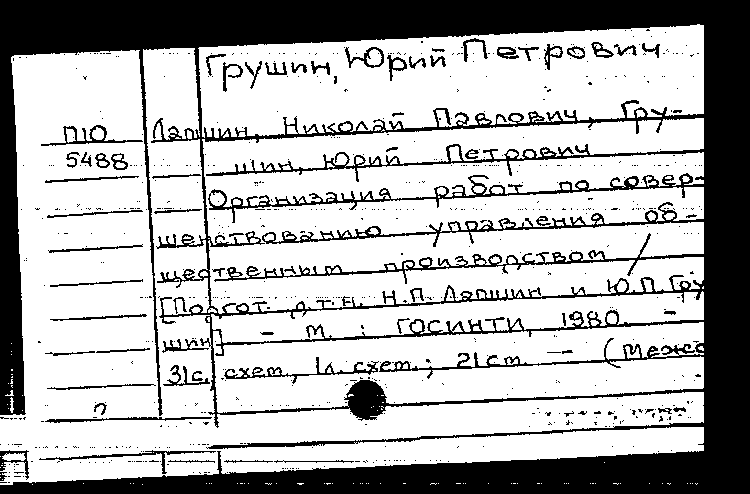 Грушин, Юрий Петрович
П10 Лапшин, Николай Павлович, Гру-
5488 шин, Юрий Петрович
Организация работ по совер-
шенствованию управления об-
щественным производством /
[Подгот. д.т.н. Н.П. Лапшин и Ю.П. Гру
шин] - М. : ГОСИНТИ, 1980. -
31с., схем., 1л. схем.; 21см - (Межо